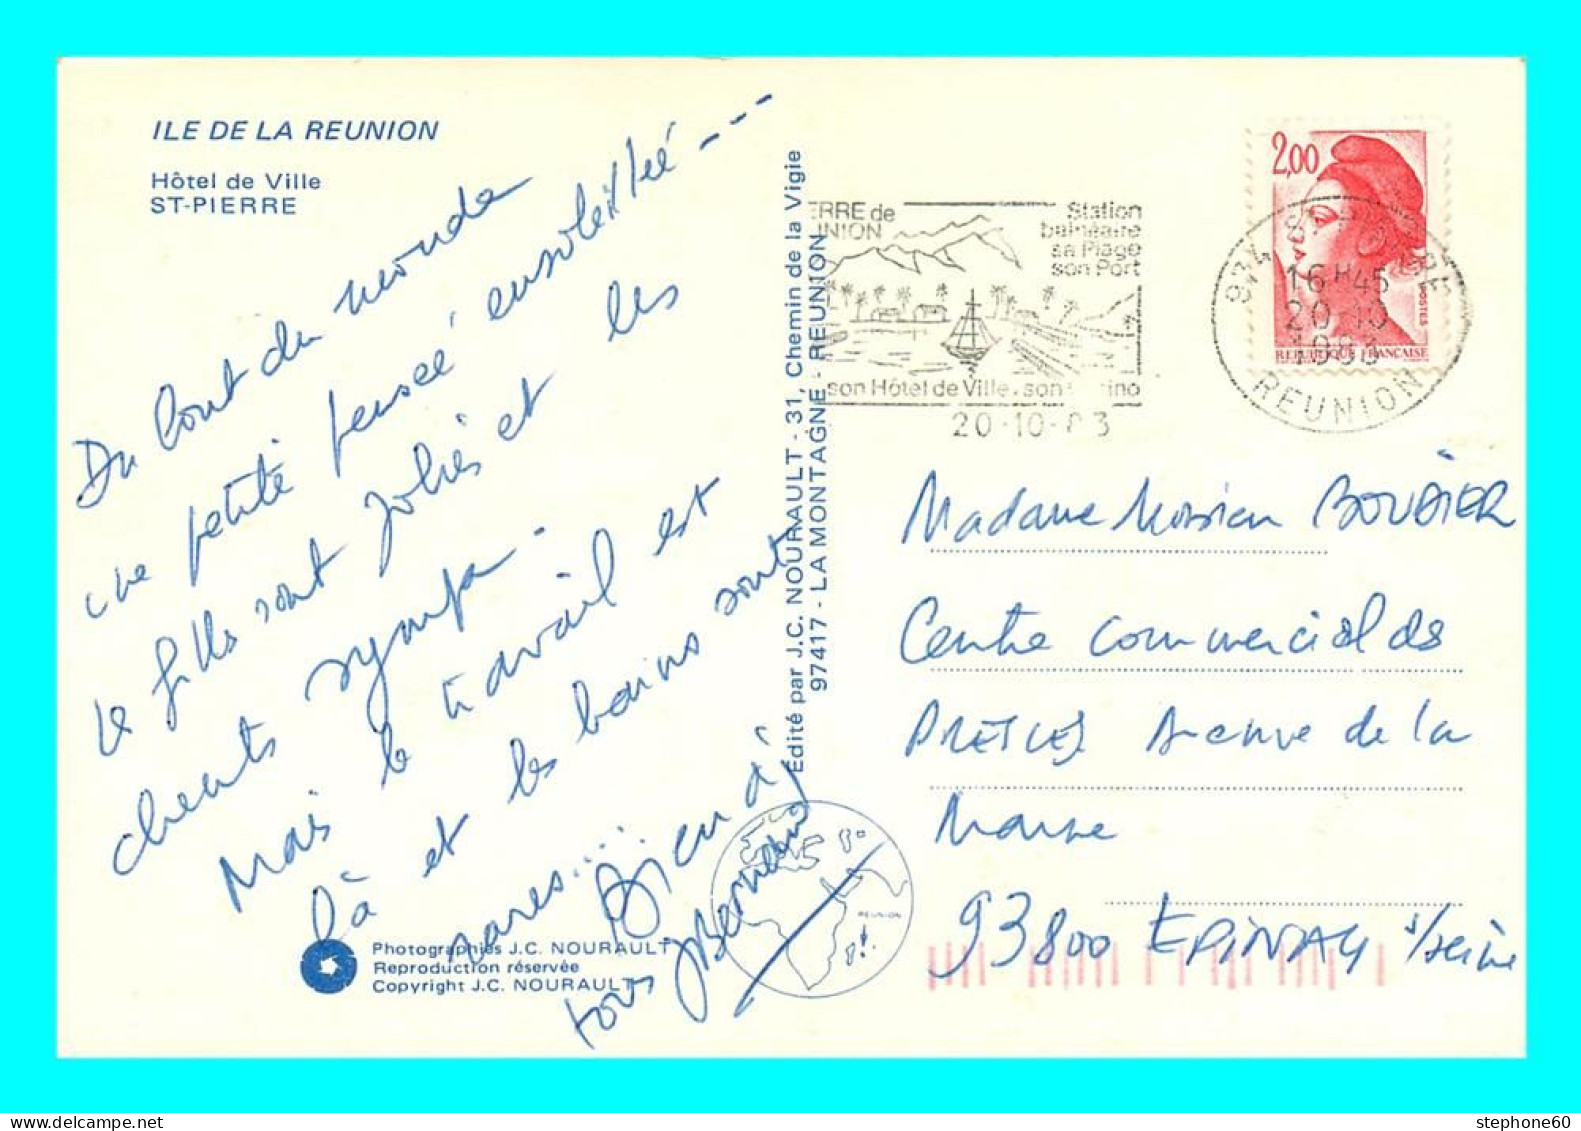 ILE DE LA REUNION
Hôtel de Ville
ST-PIERRE
Du bout du monde
une petite pensée ensoleillée ---
le filles sont jolies et les
clients sympa.
Mais le travail est
là et les bains sont
rares....
Bien à
tous
JBernard
Photographies J.C. NOURAULT
Reproduction réservée
Copyright J.C. NOURAULT
Édité par J.C. NOURAULT - 31, Chemin de la Vigie
97417 - LA MONTAGNE - REUNION
REUNION
ERRE de
UNION
Station
balnéaire
sa Plage
son Port
son Hôtel de Ville. son ino
20-10-83
974 ST PIERRE
16H45
20-10
1983
REUNION
2,00
POSTES
REPUBLIQUE FRANCAISE
Madame Monsieur
Centre commercial des
PRESLES Avenue de la
Marne
93800 EPINAY s/seine
stephone60